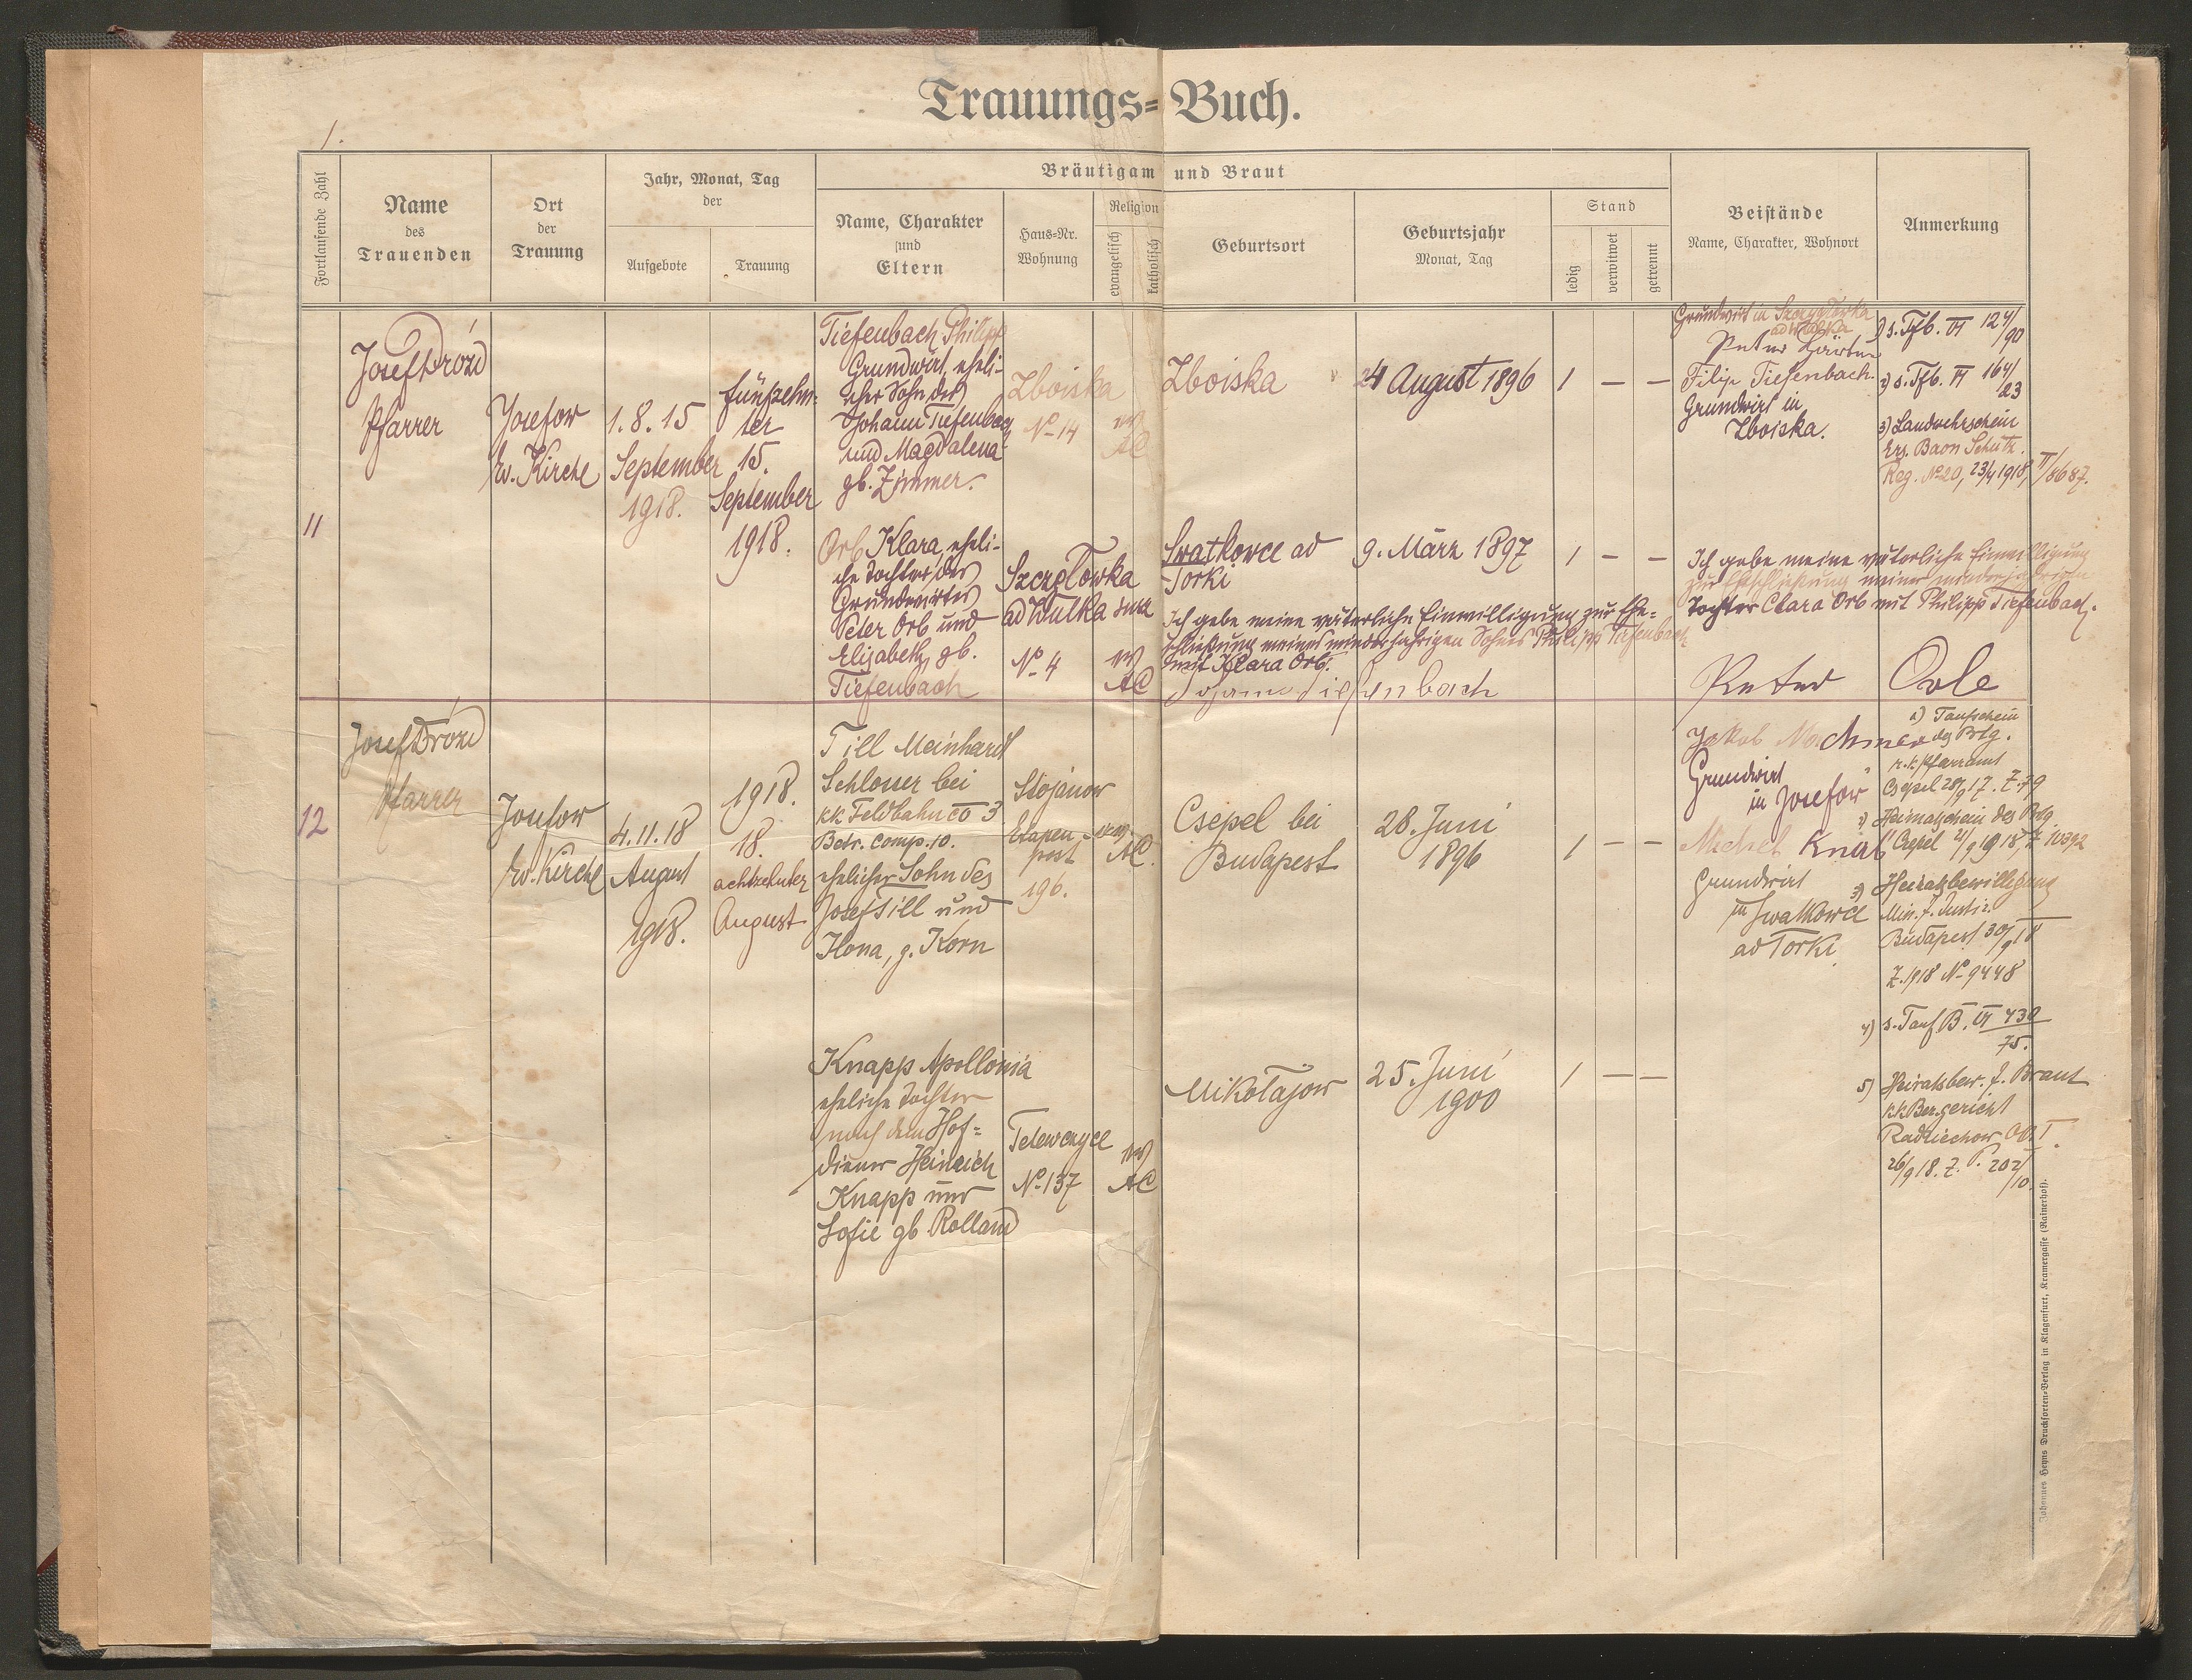 1.
Trauungs=Buch.
Fortlaufende Zahl
Name
des
Trauenden
Ort
der
Trauung
Jahr, Monat, Tag
der
Aufgebote
Trauung
Bräutigam und Braut
Name, Charakter
und
Eltern
Haus=Nr.
Wohnung
Religion
evangelisch
katholisch
Geburtsort
Geburtsjahr
Monat, Tag
Stand
ledig
verwitwet
getrennt
Beistände
Name, Charakter, Wohnort
Anmerkung
11
Josef Drozd
Pfarrer
Josefow
ev. Kirche
1. 8. 15
September
1918.
fünfzehn-
ter
15.
September
1918.
Tiefenbach Philipp
Grundwirt, eheli-
cher Sohn des
Johann Tiefenbach
und Magdalena
gb. Zimmer.
Zboiska
No 14
ev
AC
Zboiska
24 August 1896
1 — —
Grundwirt in
Peter
Filip Tiefenbach
Grundwirt in
Zboiska.
1) s. Tfb. VI 124/90
2) s. Tfb. VI 164/23
3) Landwehrschein
Ers. Baon Schütz.
Reg. No 20, 23/4 1918, II/8687.
Orb Klara, eheli-
che Tochter des
Grundwirtes
Peter Orb und
Elisabeth, gb.
Tiefenbach
ad Wulka
No 4
ev
AC
Swatkowce ad
Torki
9. März 1897
1 — —
Ich gebe meine väterliche Einwilligung zur Ehe-
schließung meines minderjährigen Sohnes Philipp Tiefenbach
mit Klara Orb.
Johann Tiefenbach
Ich gebe meine väterliche Einwilligung
zur Eheschließung meiner minderjährigen
Tochter Clara Orb mit Philipp Tiefenbach.
Peter Orb
12
Josef Drozd
Pfarrer
Josefow
ev. Kirche
4. 11. 18
August
1918.
1918.
18.
achtzehnter
August
Till Meinhardt
Schlosser bei
kk Feldbahn
Betr. Comp. 10.
ehelicher Sohn des
Josef Till und
Ilona, g. Korn
Stojanow
Etapen-
post
196.
ev.
AC.
Csepel bei
Budapest
28. Juni
1896
1 — —
Jakob
Grundwirt
in Josefow
Michel Knab
Grundwirt
in Swatkowce
ad Torki.
1) Taufschein
des Btg.
r. k. Pfarramt
Csepel 28/9 17. Z. 79
2) Heimatschein des Btg.
Csepel 21/9 1918, Z 10392
3) Heiratsbewilligung
Min. f. Justiz.
Budapest 30/9 18
Z. 1918 No 9448
4) s. Tauf B. VI 430
75.
5) Heiratsbew. f. Braut
kk Bez.gericht
Radziechow Abt. I.
26/9 18. Z. P. 202/10.
Knapp Apollonia
eheliche Tochter
nach dem Hof=
diener Heinrich
Knapp und
Sofie gb Rolland
Tetewczyce
No 137
ev
AC
Mikołajow
25. Juni
1900
1 — —
Johannes Heyns Drucksorten=Verlag in Klagenfurt, Kramergasse (Rainerhof).